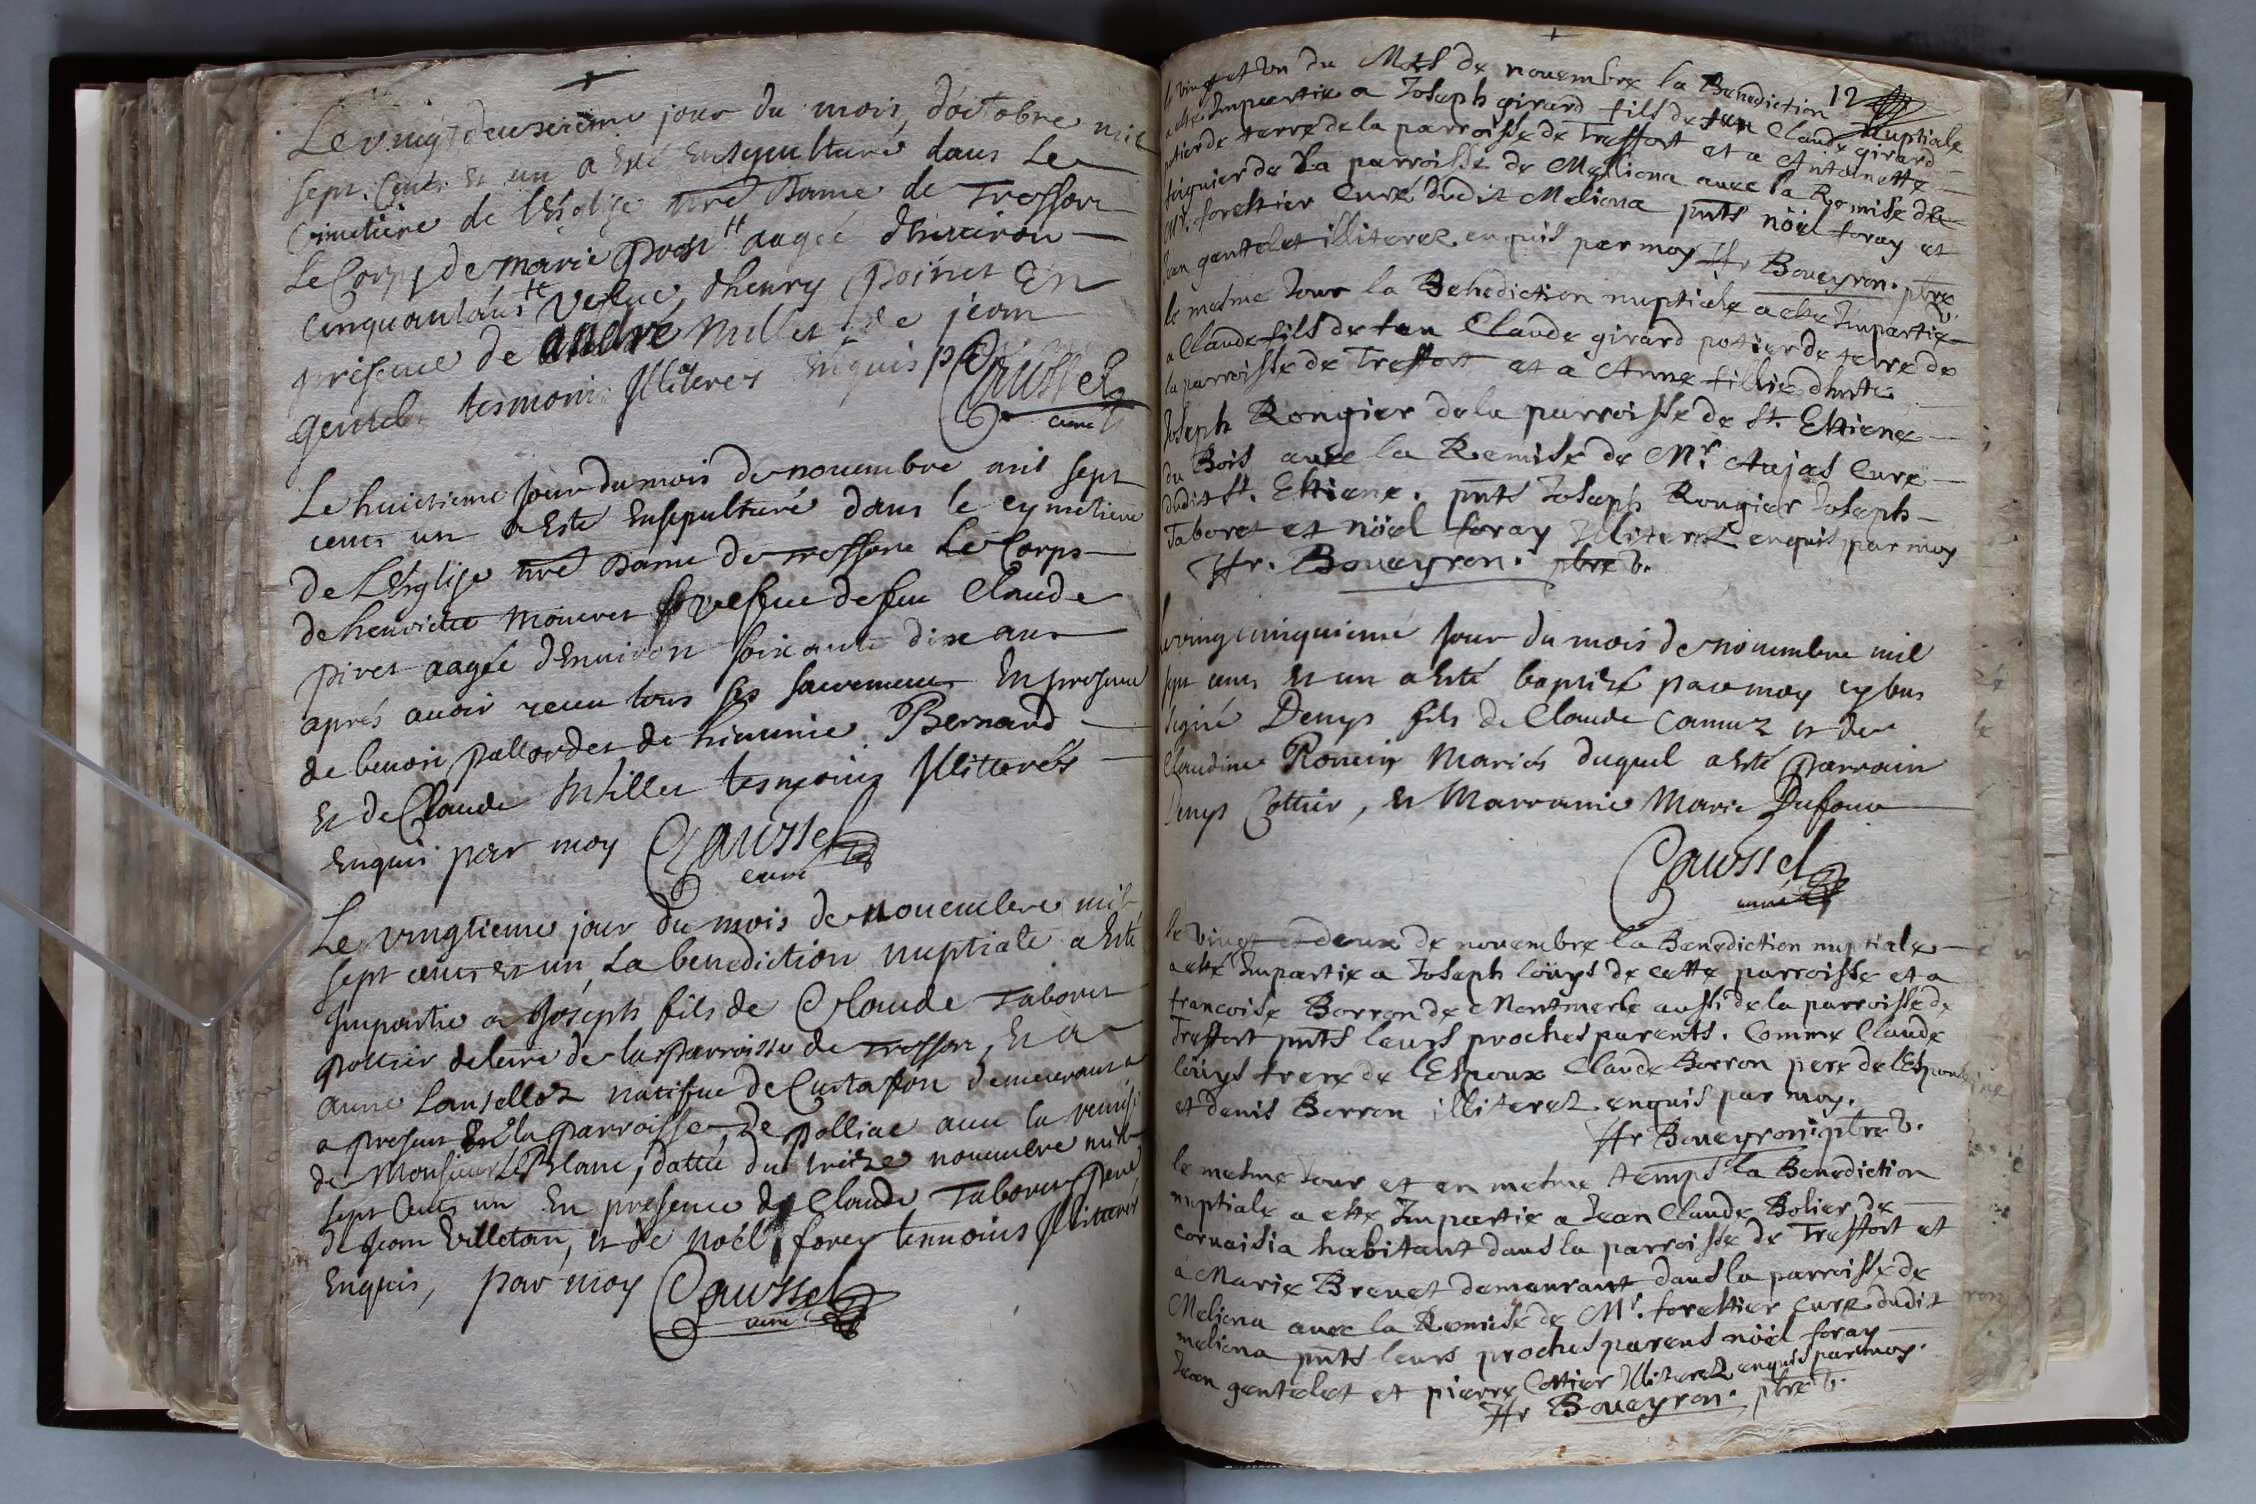 Le vingt deuxieième jour du mois, d'octobre mil
sept. Cents et un a Esté Ensepulturé dans Le
Cimetiere de l'Eglise nre Dame de Treffort
Le Corps de marie aagée d'huiron
Cinquantans Vefue d'henry poinet En
présence de andré millet de jean
gentelet tesmoins Jlliteres Enquis par
Caussel
curé
Le huictieme jour du mois de nouembre mil sept
cents un a Esté Ensepulturé dans le cymetiere
de L'Eglise nre Dame de Treffort Le Corps
de henriette moneret vefue de feu Claude
piret aagée d'Enuiron soixante dix ans
aprés auoir receu tous ses sacremens En presence
de benoit pallordet de Bernard
Et de Claude Millet tesmoins Jllitterés
Enquis par moy Caussel
curé
Le vingtieme jour du mois de nouembre mil
sept cents et un La benediction nuptiale a Esté
Jmpartie a Joseph fils de Claude Taboret
pottier de terre de la parroisse de Treffort, Et a
anne Lanselloz natifue de Curtafon demeurant
a present En la parroisse de polliac auec la remise
de Monsieur LeBlanc, dattée du treize nouembre mil
sept Cents un En présence de Claude Taboret pere,
de Jean Villetan, et de noél forey temoins Jllitterés
Enquis, par moy Caussel
curé
12
le vingt et un du Mois de nouembre la Benediction nuptiale
a este Impartie a Joseph girard fils de feu Claude girard
potier de terre de la parroisse de Treffort et a Antoinette
de la parroisse de Meliona auec la Remise de
Mr. forestier curé dudit Meliona pnts nöel foray et
Jean gentelet illiterez enquis par moy Hr Boueyron. pbre v.
le mesme Jour la Benediction nuptiale a este Impartie
a Claude fils de feu Claude girard potier de terre de
la parroisse de Treffort et a Anne fillie dhte
Joseph Rongier de la parroisse de St. Estiene
du Bois auec la Remise de Mr. Aujas Curé
dudit St. Estiene. pnts Joseph Rongier Joseph
Taboret et nöel foray Illiterez enquis par moy
Hr. Boueyron. pbre v.
Le vingt cinquieme Jour du mois de nouembre mil
sept cents et un a Esté baptizé par moy cy bus
signé Denys fils de Claude Camuz et de
Claudine Ronein Mariés duquel a Esté Parrain
Denys Cottier, Et Marraine Marie Dufour
Caussel
curé
le vingt et deux de nouembre la Benediction nuptiale
a esté Impartie a Joseph löuys de cette parroisse et a
francoise Borron de Montmerle aussi de la parroisse de
Treffort pnts leurs proches parents. Comme Claude
löuys frere de l'Espoux Claude Borron pere de l'Espouse
et denis Borron illiterez enquis par moy.
Hr Boueyron. pbre v.
le mesme Jour et en mesme temps la Benediction
nuptiale a este Impartie a Jean Claude Bolier de
Coruaisia habitant dans la parroisse de Treffort et
a Marie Breuet demeurant dans la parroisse de
Meliona auec la Remise de Mr. forestier curé dudit
meliona pnts leurs proches parens nöel foray
Jean gentelet et pierre Cottier Illiterez enquis par moy.
Hr Boueyron. pbre v.